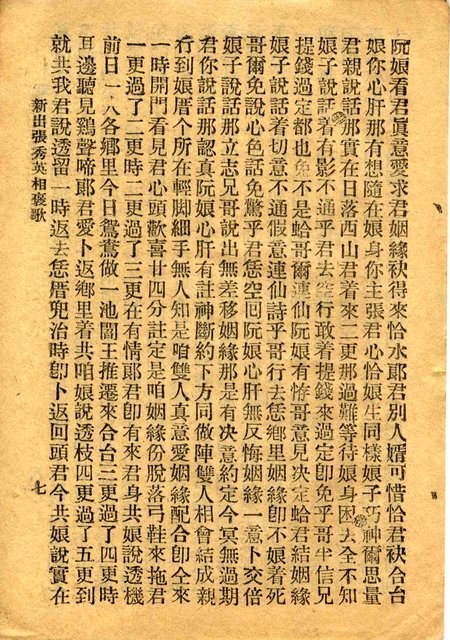 阮娘看君眞意愛求君姻緣袂得來恰水郎君別人婿可惜恰君袂合台
娘你心肝那有想隨在娘身你主張君心恰娘生同樣娘子巧神爾思量
君親說話那實在日落西山君着來二更那過難等待娘身困去全不知
娘子說話着有影不通乎君去空行敢着提錢來過定卽免乎哥半信兄
提錢過定都也免不是蛤哥爾連仙阮娘有恠哥意見决定蛤君結姻緣
娘子說話着切意不通假意連仙詩乎哥行去恁鄉里姻緣卽不娘着死
哥爾免說心色話免驚乎君恁空回阮娘心肝無反悔姻緣一意卜交倍
娘子說話那立志兄哥說出無差移姻緣那是有决意約定今冥無過期
君你說話那認真阮娘心肝有註神斷約下方同做陣雙人相會結成親
行到娘厝个所在輕脚細手無人知是咱雙人真意愛姻緣配合卽仝來
一時開門看見君心頭歡喜廿四分註定是咱姻緣份脫落弓鞋來拖君
一更過了二更時二更過了三更在有情郞君卽有來君身共娘說透機
前日一八各鄉里今日鴛鴦做一池閻王推遷來合台三更過了四更時
耳邊聽見鷄聲啼郞君愛卜返鄉里着共咱娘說透枝四更過了五更到
就共我君說透留一時返去恁厝兜治時卽卜返回頭君今共娘說實在
新出張秀英相褒歌
七